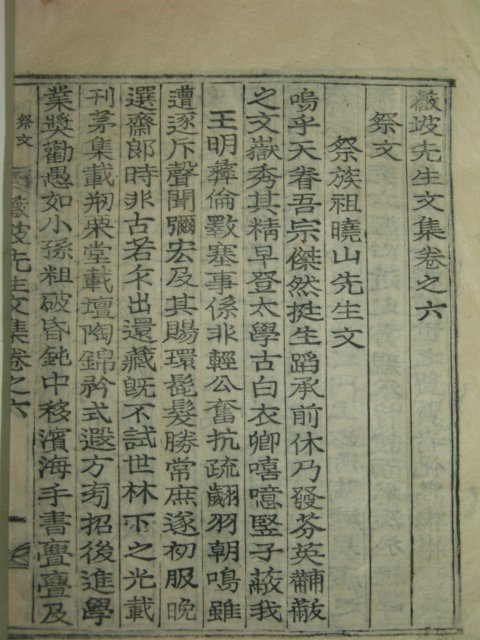 薇坡先生文集卷之六
祭文
祭族祖曉山先生文
嗚乎天眷吾宗傑然挺生蹈承前休乃發芬英黼黻
之文嶽秀其精早登太學古白衣卿嘻噫竪子蔽我
王明彝倫斁塞事係非輕公奮抗疏翽羽朝鳴雖
遭逐斥聲聞彌宏及其賜環髭髮勝常庶遂初服晚
選齋郎時非古若尒出還藏旣不試世林下之光載
刊茅集載刱栗堂載壇陶錦矜式遐方有招後進學
業奬勸愚如小孫粗破昏鈍中移濱海手書亹亹及
祭文
薇坡先生文集卷之六
一